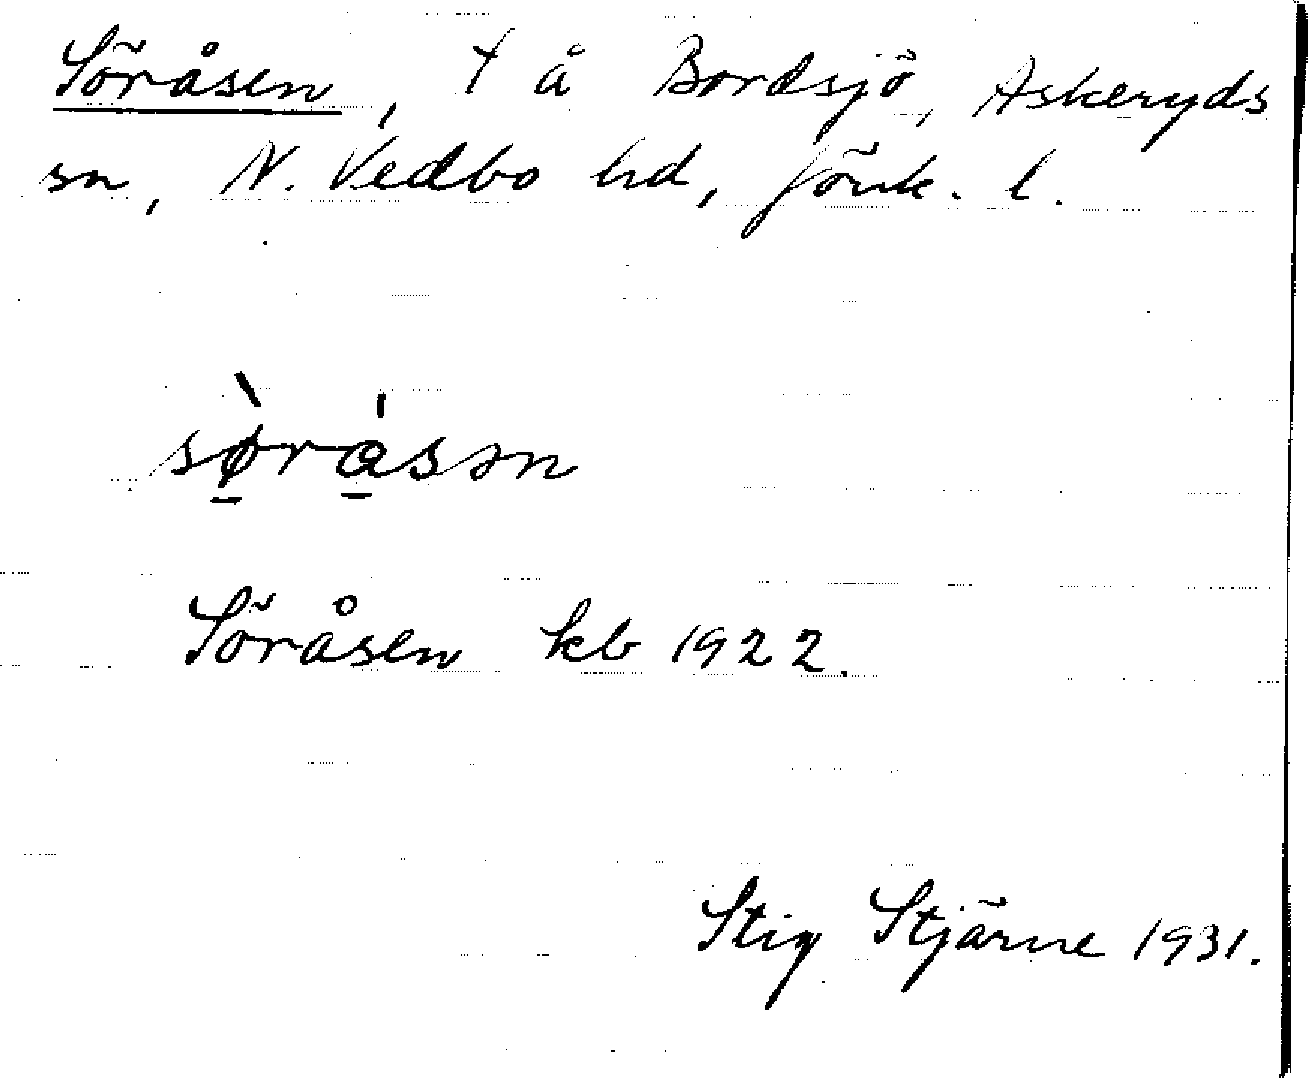 Söråsen, t å Bordsjö, Askeryds
sn, N. Vedbo hd, Jönk. l.
sø̱̀rå̱sən
Söråsen kb 1922.
Stig Stjärne 1931.